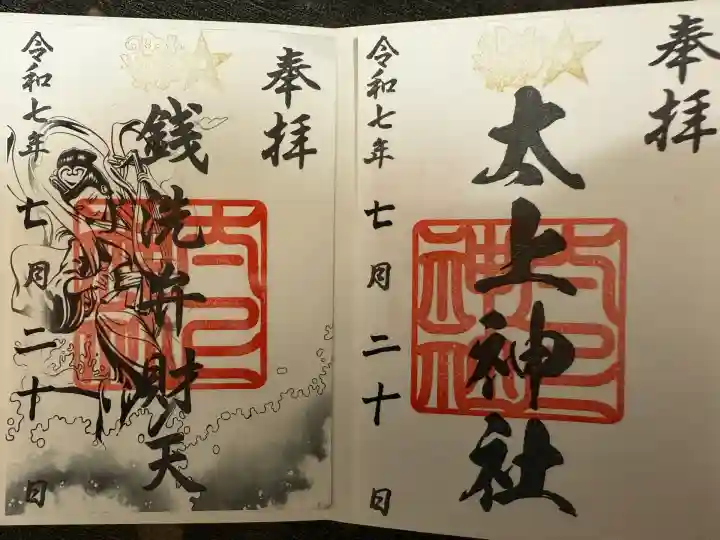 奉拝
太上神社
令和七年 七月二十日
奉拝
銭洗弁財天
令和七年 七月二十日